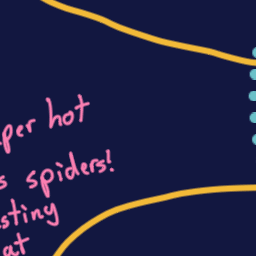 per hot
s spiders!
sting
at